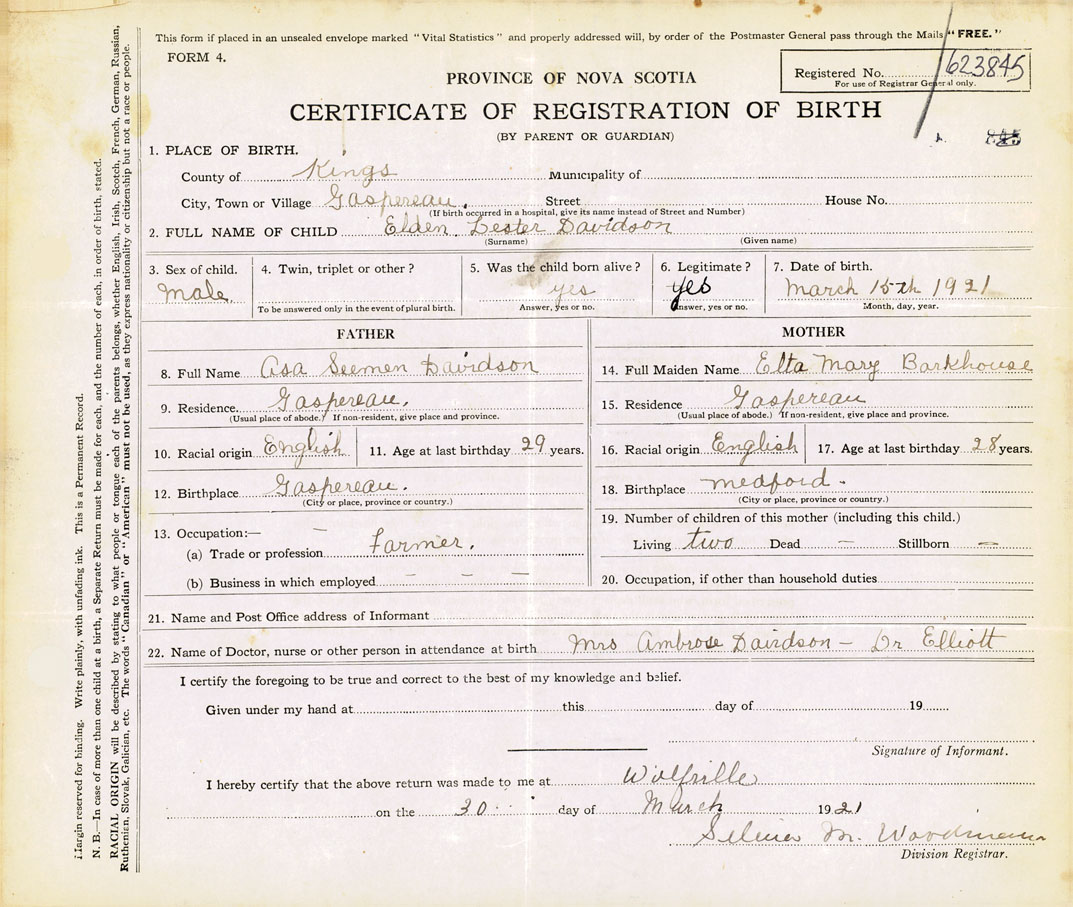 This form if placed in an unsealed envelope marked "Vital Statistics" and properly addressed will, by order of the Postmaster General pass through the Mails "FREE."
FORM 4.
Registered No. 623845
For use of Registrar General only.
PROVINCE OF NOVA SCOTIA
CERTIFICATE OF REGISTRATION OF BIRTH
(BY PARENT OR GUARDIAN)
1. PLACE OF BIRTH.
County of Kings Municipality of
City, Town or Village Gaspereau. Street House No.
(If birth occurred in a hospital, give its name instead of Street and Number)
2. FULL NAME OF CHILD Elden Lester Davidson
(Surname) (Given name)
3. Sex of child. 4. Twin, triplet or other? 5. Was the child born alive? 6. Legitimate? 7. Date of birth.
Male. yes yes March 15th 1921
To be answered only in the event of plural birth. Answer, yes or no. Answer, yes or no. Month, day, year.
FATHER
8. Full Name Asa Davidson
9. Residence. Gaspereau.
(Usual place of abode.) If non-resident, give place and province.
10. Racial origin English 11. Age at last birthday 29 years.
12. Birthplace Gaspereau.
(City or place, province or country.)
13. Occupation:— –
(a) Trade or profession Farmer.
(b) Business in which employed – – –
MOTHER
14. Full Maiden Name Elta Mary Barkhouse
15. Residence Gaspereau
(Usual place of abode.) If non-resident, give place and province.
16. Racial origin English 17. Age at last birthday 28 years.
18. Birthplace Medford.
(City or place, province or country.)
19. Number of children of this mother (including this child.)
Living two Dead – Stillborn –
20. Occupation, if other than household duties
21. Name and Post Office address of Informant
22. Name of Doctor, nurse or other person in attendance at birth Mrs Ambrose Davidson – Dr Elliott
I certify the foregoing to be true and correct to the best of my knowledge and belief.
Given under my hand at this day of 19
Signature of Informant.
I hereby certify that the above return was made to me at Wolfville
on the 30 day of March 1921
M. Woodman
Division Registrar.
Margin reserved for binding. Write plainly, with unfading ink. This is a Permanent Record.
N. B.—In case of more than one child at a birth, a Separate Return must be made for each, and the number of each, in order of birth, stated.
RACIAL ORIGIN will be described by stating to what people or tongue each of the parents belongs, whether English, Irish, Scotch, French, German, Russian,
Ruthenian, Slovak, Galician, etc. The words "Canadian" or "American" must not be used, as they express nationality or citizenship but not a race or people.